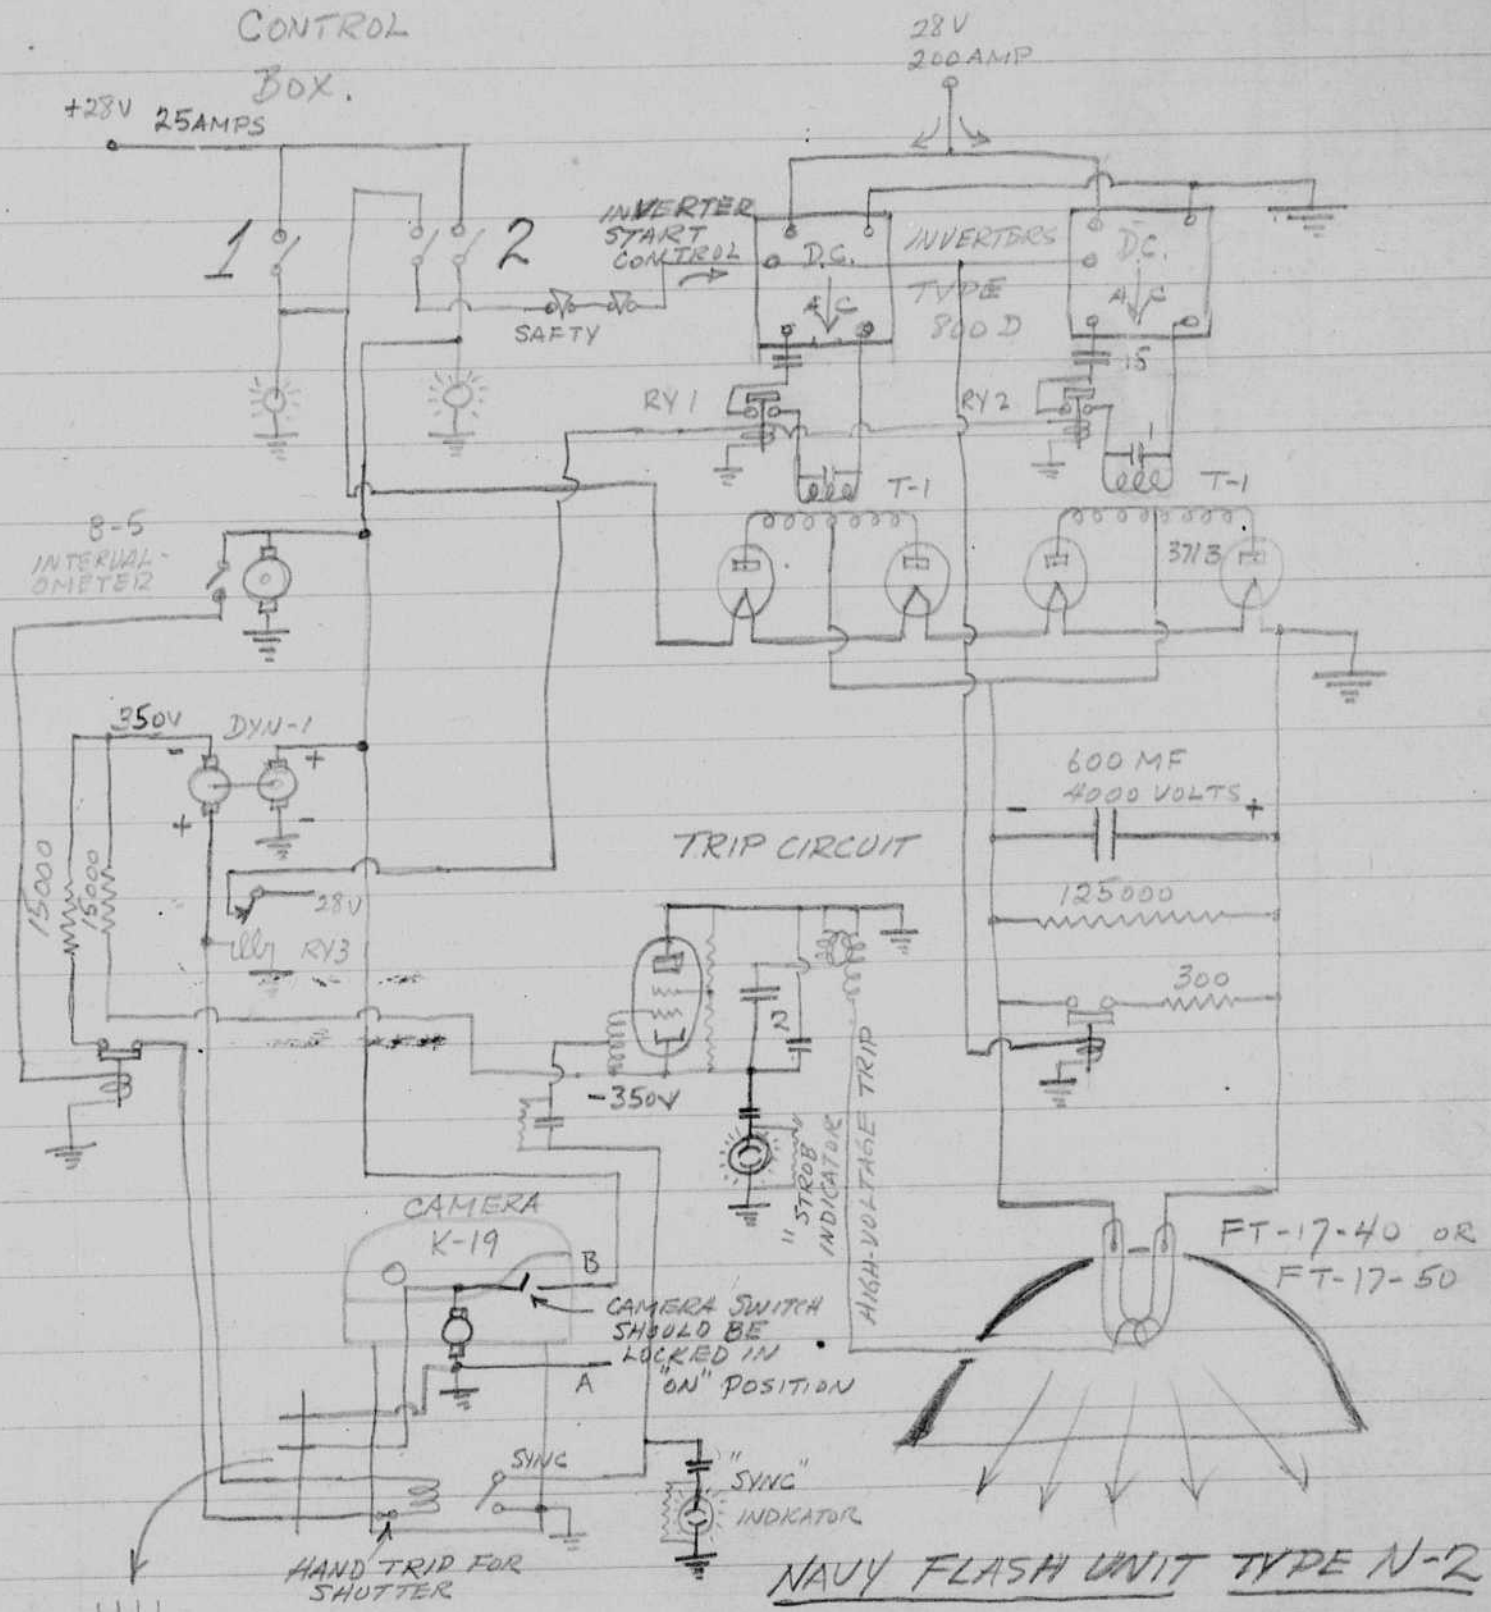 CONTROL
BOX.
+28V 25AMPS
28V
200AMP
1
2
INVERTER
START
CONTROL
SAFTY
D.C.
AC
INVERTERS
TYPE
800 D
D.C.
AC
15
RY 1
RY 2
1
T-1
T-1
371B
B-5
INTERVAL-
OMETER
350V
DYN-1
-
+
+
-
15000
15000
28V
RY3
TRIP CIRCUIT
600 MF
4000 VOLTS
-
+
125000
300
2
-350V
"STROB
INDICATOR
HIGH-VOLTAGE TRIP
CAMERA
K-19
B
CAMERA SWITCH
SHOULD BE
LOCKED IN
"ON" POSITION
A
FT-17-40 OR
FT-17-50
SYNC
"SYNC"
INDKATOR
HAND TRIP FOR
SHUTTER
NAVY FLASH UNIT TYPE N-2